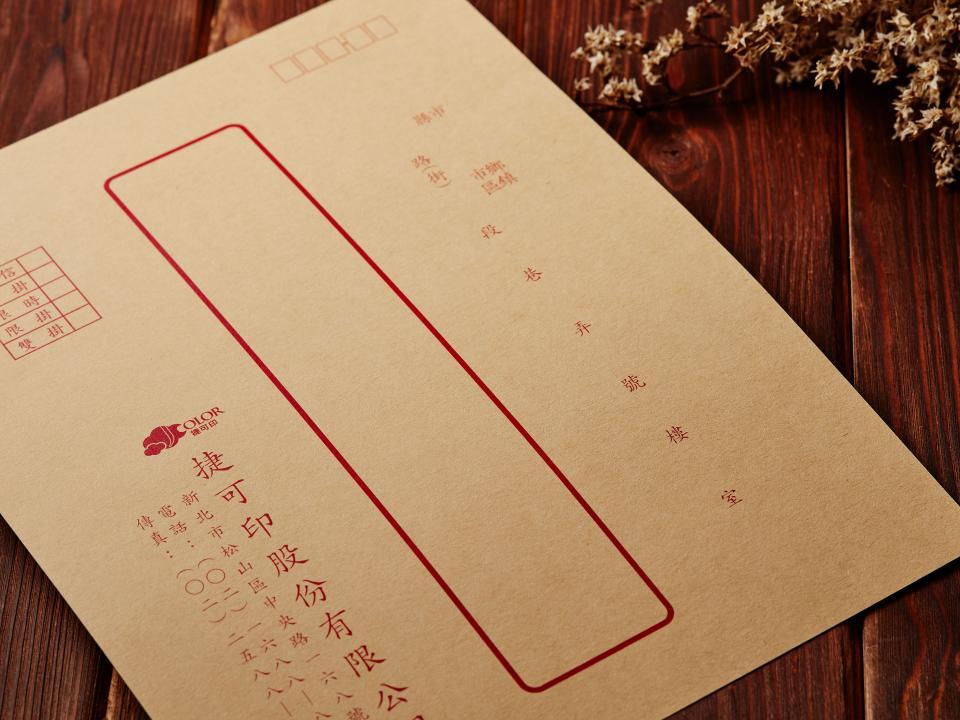 縣市
鄉鎮
市區
路(街)
段
巷
弄
號
樓
室
信
掛
限時
限掛
雙掛
COLOR
捷可印
捷可印股份有限公
新北市松山區中央路一六八號
電話：(〇二)一六八八—八
傳真：(〇二)二五八八—